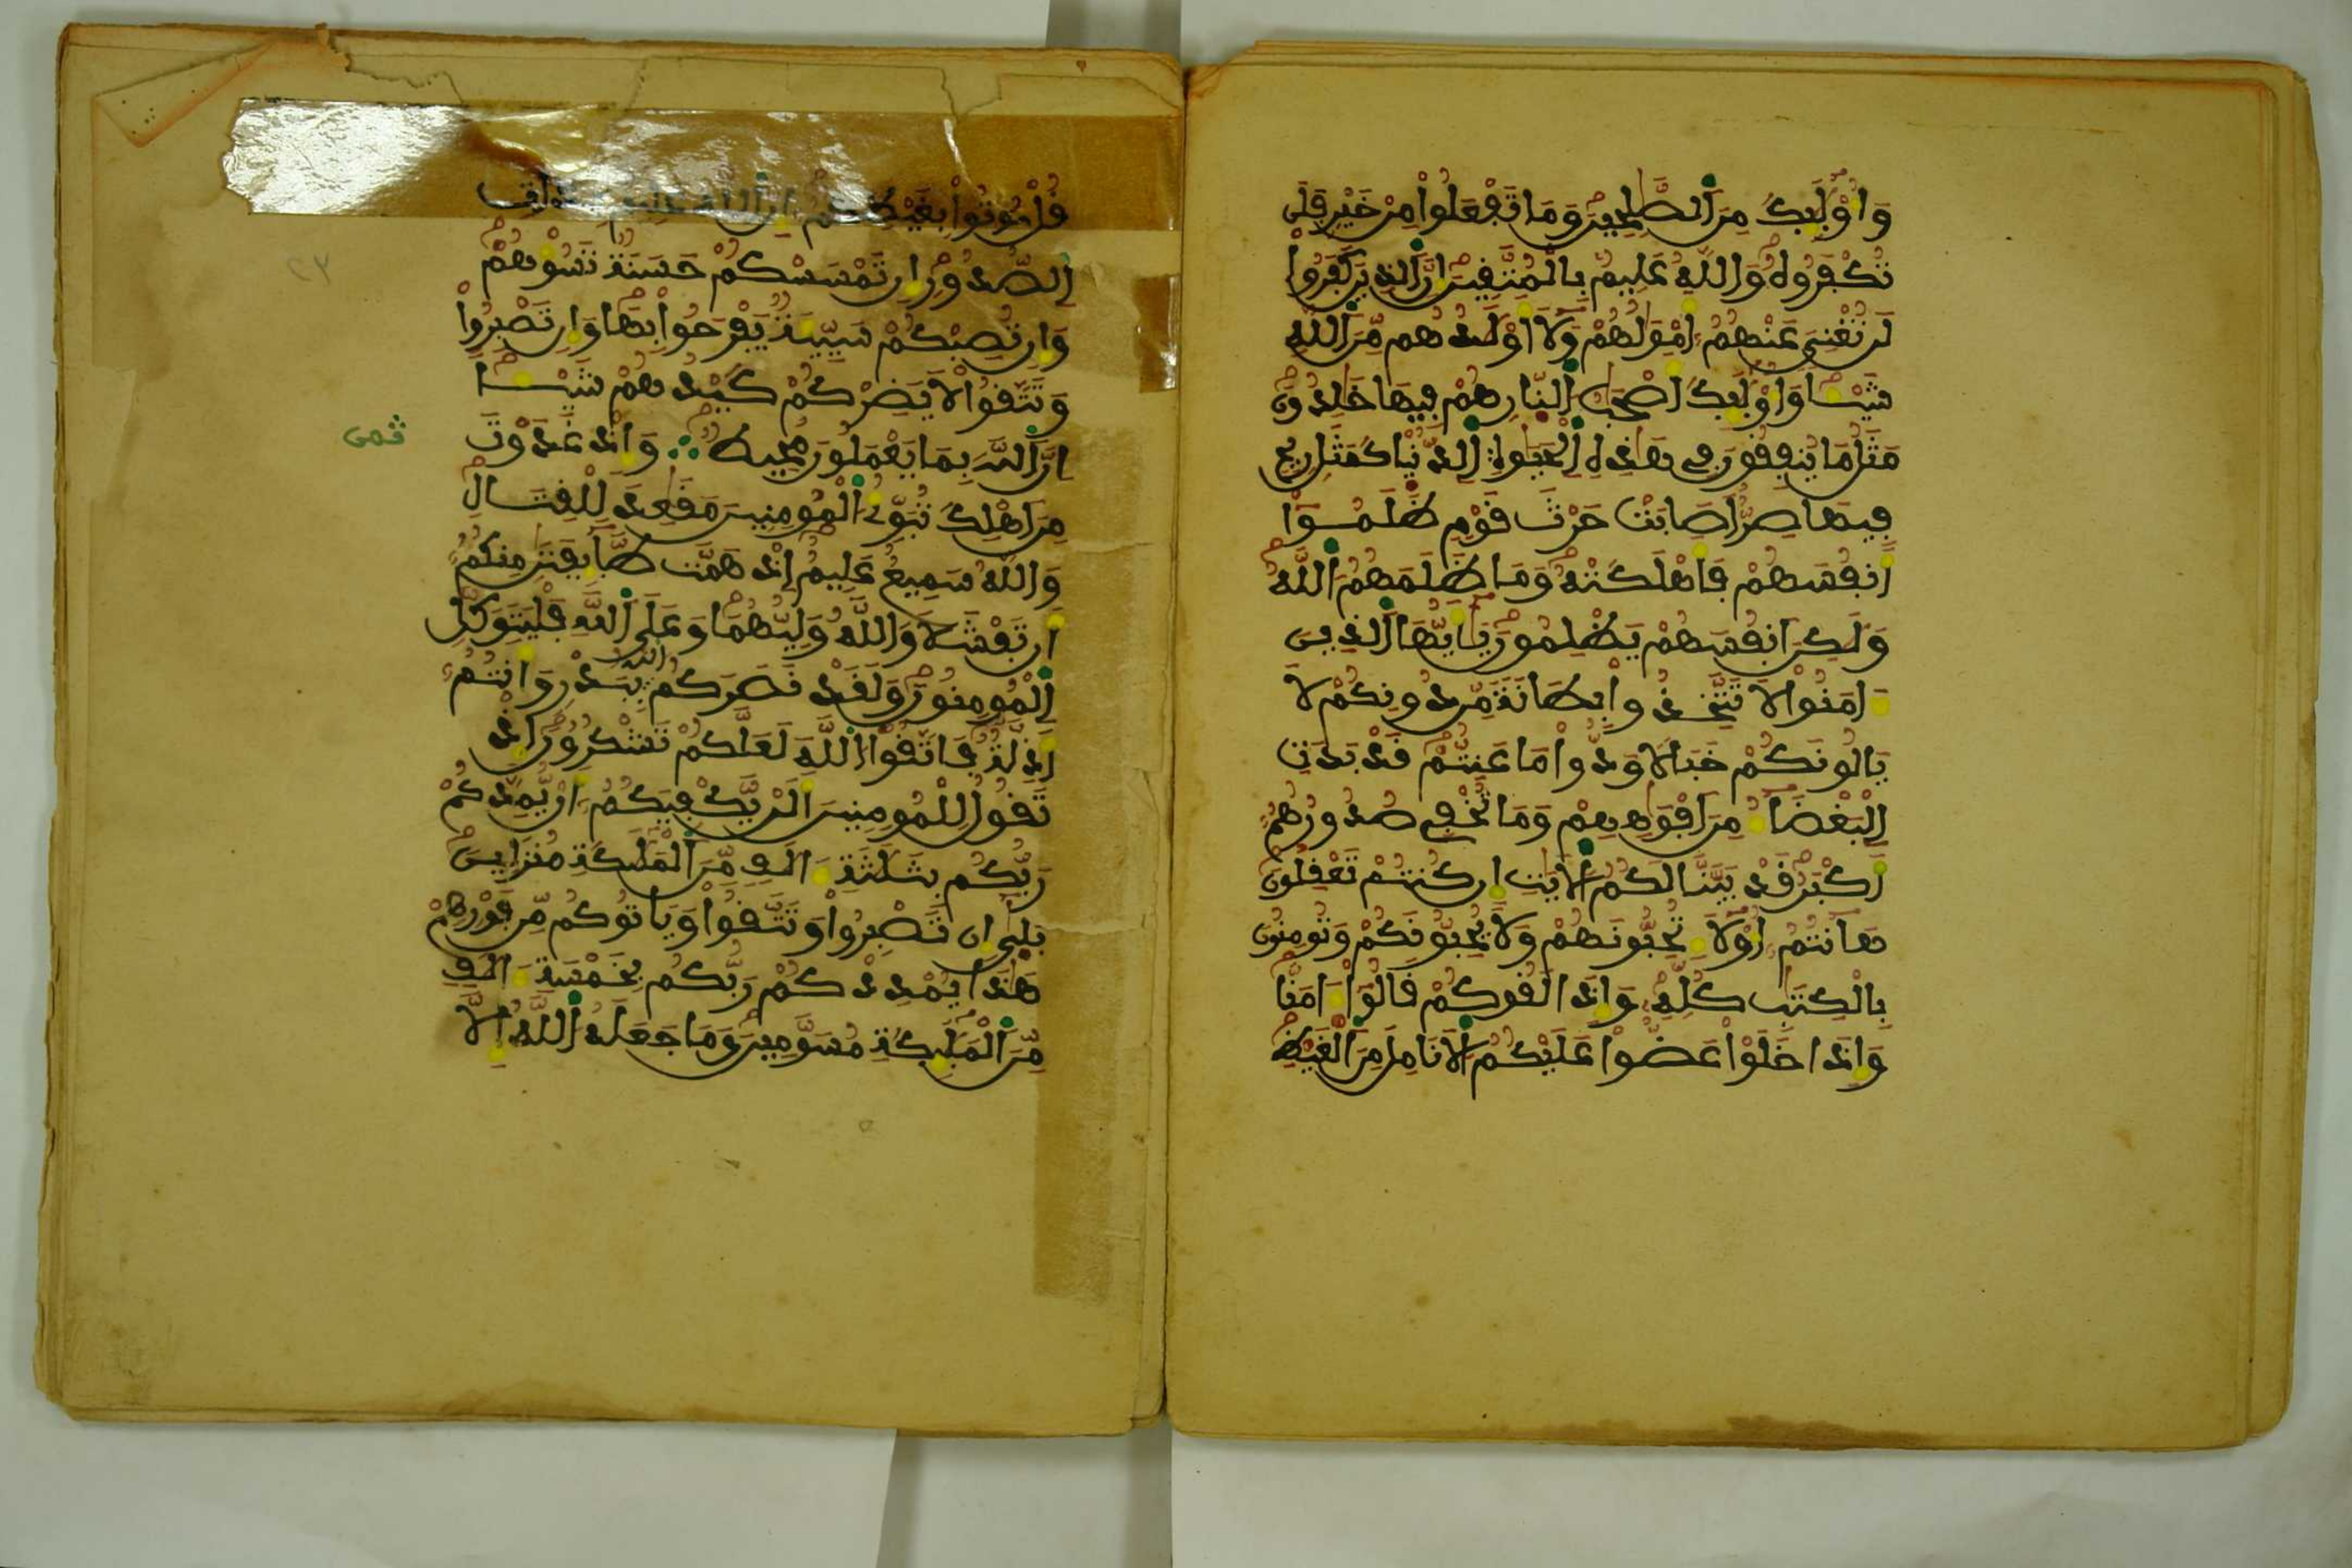 وَأُوْلَٰٓئِكَ مِنَ ٱلصَّٰلِحِينَ وَمَا تَفْعَلُواْ مِنْ خَيْرٖ فَلَن
تُكْفَرُوهُ وَٱللَّهُ عَلِيمُۢ بِالْمُتَّقِينَ إِنَّ ٱلذِينَ كَفَرُواْ
لَن تُغْنِيَ عَنْهُمُۥٓ أَمْوَٰلُهُمْ وَلَآ أَوْلَٰدُهُم مِّنَ ٱللَّهِ
شَيْـٔاً وَأُوْلَٰٓئِكَ أَصْحَٰبُ ٱلنّ۪ارِ هُمْ فِيهَا خَٰلِدُونَ
مَثَلُ مَا يُنفِقُونَ فِي هَٰذِهِ ٱلْحَيَوٰةِ ٱلدُّنْي۪ا كَمَثَلِ رِيحٖ
فِيهَا صِرٌّ أَصَابَتْ حَرْثَ قَوْمٖ ظَلَمُوٓاْ
أَنفُسَهُمْ فَأَهْلَكَتْهُ وَمَا ظَلَمَهُمُ ٱللَّهُ
وَلَٰكِنَ أَنفُسَهُمْ يَظْلِمُونَ يَٰٓأَيُّهَا ٱلذِينَ
ءَامَنُواْ لَا تَتَّخِذُواْ بِطَانَةٗ مِّن دُونِكُمْ لَا
يَالُونَكُمْ خَبَالاٗ وَدُّواْ مَا عَنِتُّمْ قَدْ بَدَتِ
ٱلْبَغْضَآءُ مِنَ أَفْوَٰهِهِمْ وَمَا تُخْفِي صُدُورُهُمُۥٓ
أَكْبَرُ قَدْ بَيَّنَّا لَكُمُ ٱلْأٓيَٰتِ إِن كُنتُمْ تَعْقِلُونَ
هَآنتُمُۥٓ أُوْلَآءِ تُحِبُّونَهُمْ وَلَا يُحِبُّونَكُمْ وَتُومِنُونَ
بِالْكِتَٰبِ كُلِّهِۦ وَإِذَا لَقُوكُمْ قَالُوٓاْ ءَامَنَّا
وَإِذَا خَلَوْاْ عَضُّواْ عَلَيْكُمُ ٱلْأَنَامِلَ مِنَ ٱلْغَيْظِ
قُلْ مُوتُواْ بِغَيْظِكُمُۥٓ إِنَّ ٱللَّهَ عَلِيمُۢ بِذَاتِ
ٱلصُّدُورِ إِن تَمْسَسْكُمْ حَسَنَةٞ تَسُؤْهُمْ
وَإِن تُصِبْكُمْ سَيِّئَةٞ يَفْرَحُواْ بِهَا وَإِن تَصْبِرُواْ
وَتَتَّقُواْ لَا يَضِرْكُمْ كَيْدُهُمْ شَيْـٔاً
إِنَّ ٱللَّهَ بِمَا يَعْمَلُونَ مُحِيطٞ ۞ وَإِذْ غَدَوْتَ
ثمن
مِنَ أَهْلِكَ تُبَوِّئُ ٱلْمُومِنِينَ مَقَٰعِدَ لِلْقِتَالِ
وَٱللَّهُ سَمِيعٌ عَلِيمٌ إِذْ هَمَّت طَّآئِفَتَٰنِ مِنكُمُۥٓ
أَن تَفْشَلَا وَٱللَّهُ وَلِيُّهُمَا وَعَلَى ٱللَّهِ فَلْيَتَوَكَّلِ
ٱلْمُومِنُونَ وَلَقَدْ نَصَرَكُمُ ٱللَّهُ بِبَدْرٖ وَأَنتُمُۥٓ
أَذِلَّةٞ فَاتَّقُواْ ٱللَّهَ لَعَلَّكُمْ تَشْكُرُونَ إِذْ
تَقُولُ لِلْمُومِنِينَ أَلَنْ يَّكْفِيَكُمُۥٓ أَنْ يُّمِدَّكُمْ
رَبُّكُم بِثَلَٰثَةِ ءَالَٰفٖ مِّنَ ٱلْمَلَٰٓئِكَةِ مُنزَلِينَ
بَلَىٰٓ إِن تَصْبِرُواْ وَتَتَّقُواْ وَيَاتُوكُم مِّن فَوْرِهِمْ
هَٰذَا يُمْدِدْكُمْ رَبُّكُم بِخَمْسَةِ ءَالَٰفٖ
مِّنَ ٱلْمَلَٰٓئِكَةِ مُسَوَّمِينَ وَمَا جَعَلَهُ ٱللَّهُ إِلَّا